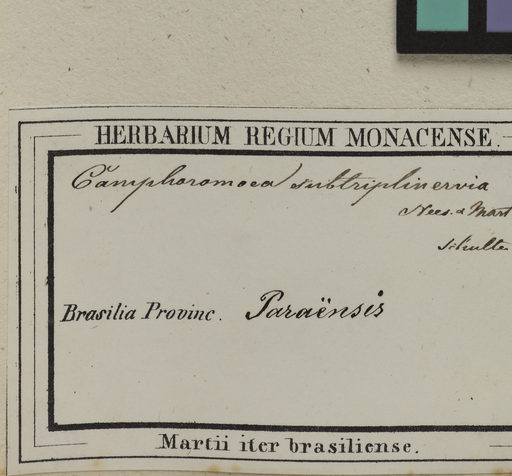 HERBARIUM REGIUM MONACENSE.
Camphoromoea subtriplinervia
Nees. & Mart
Schulte
Brasilia Provinc. Paraënsis
Martii iter brasiliense.